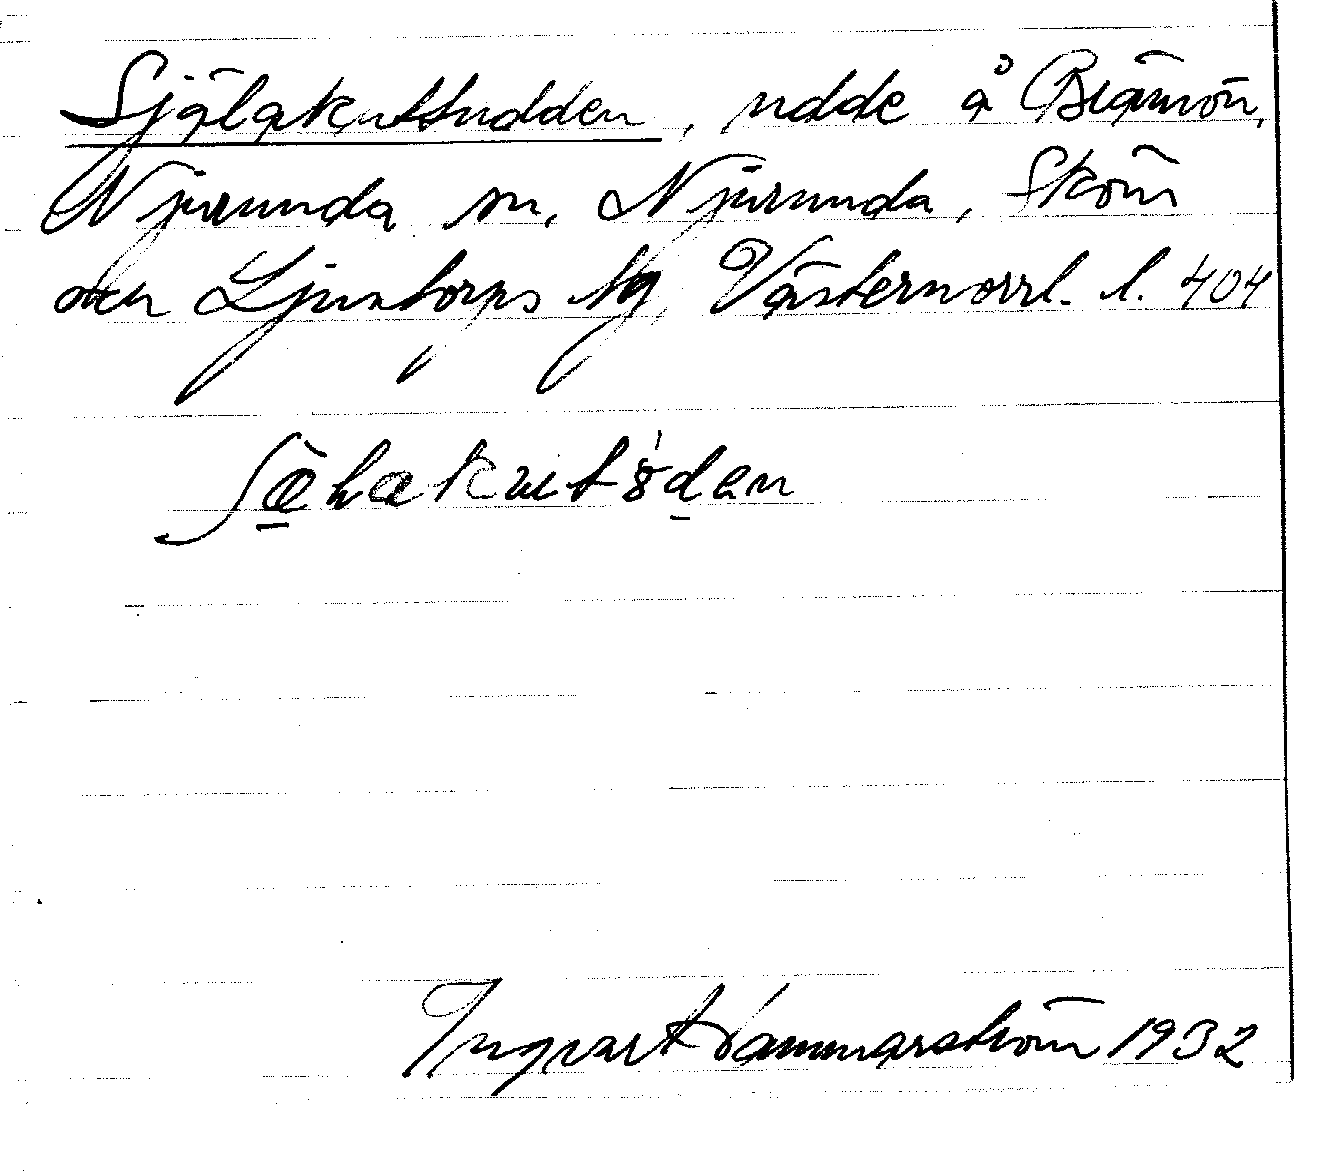 Själaknutsudden, udde å Brämön,
Njurunda sn, Njurunda, Sköns
och Ljustorps tg, Västernorrl. l. 404
Ingvar Hammarström 1932